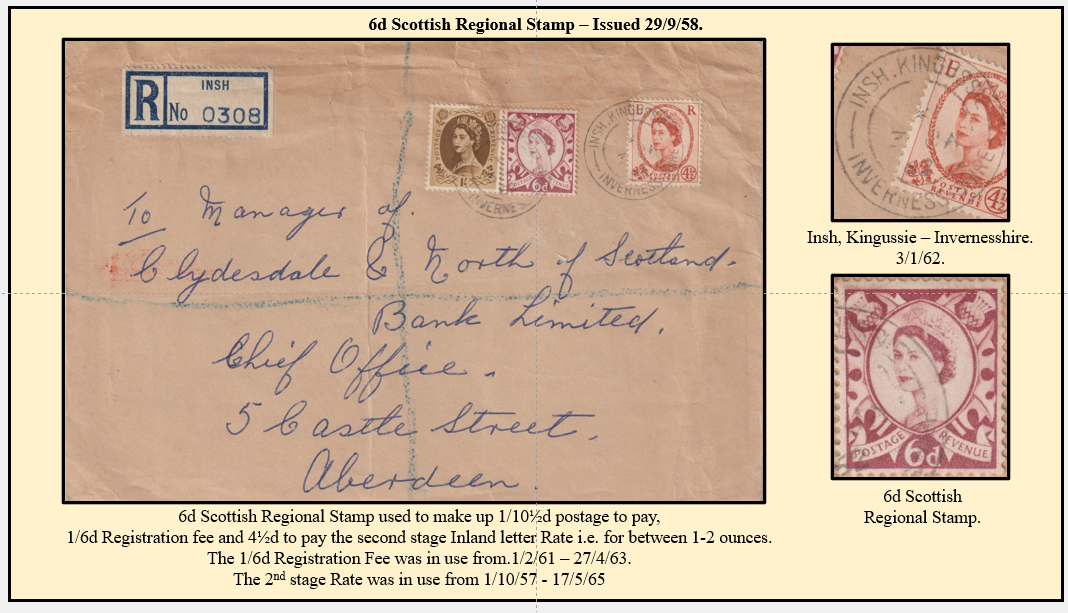 6d Scottish Regional Stamp – Issued 29/9/58.
R
INSH
No 0308
INVERNES
POSTAGE
6d
INSH. KING
R
4½
INVERNESS
To Manager of.
Clydesdale & North of Scotland.
Bank Limited.
Chief Office.
5 Castle Street.
Aberdeen.
INSH. KING
POSTAGE
REVENUE
4½
INVERNESS
Insh, Kingussie – Invernesshire.
3/1/62.
POSTAGE
REVENUE
6d
6d Scottish
Regional Stamp.
6d Scottish Regional Stamp used to make up 1/10½d postage to pay,
1/6d Registration fee and 4½d to pay the second stage Inland letter Rate i.e. for between 1-2 ounces.
The 1/6d Registration Fee was in use from.1/2/61 – 27/4/63.
The 2nd stage Rate was in use from 1/10/57 - 17/5/65